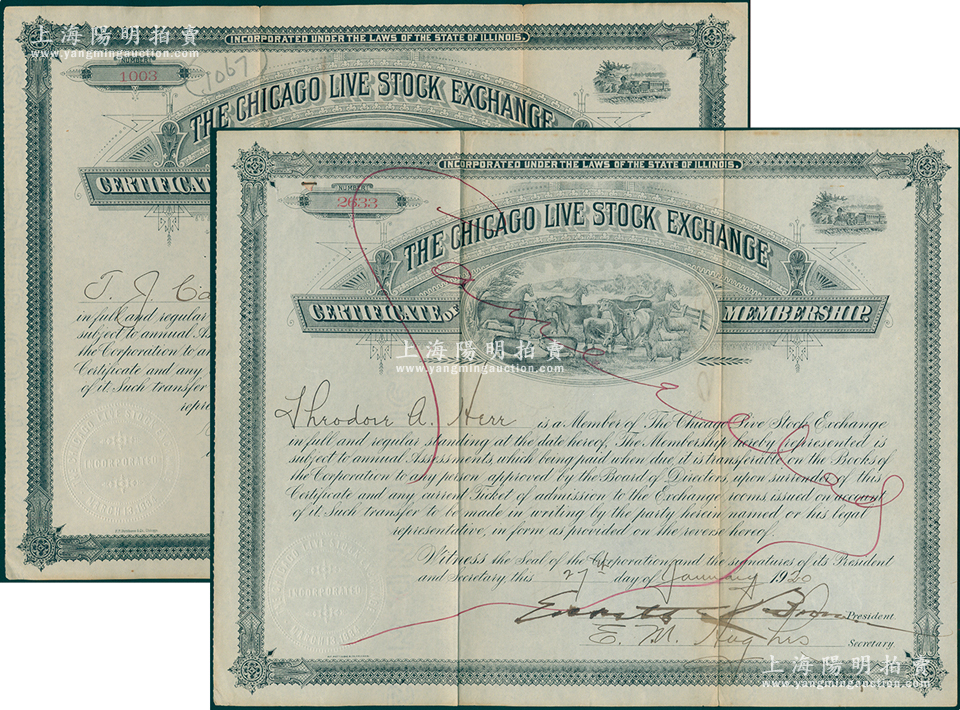 上海陽明拍賣
www.yangmingauction.com
INCORPORATED UNDER THE LAWS OF THE STATE OF ILLINOIS.
NUMBER
1003
1067
THE CHICAGO LIVE STOCK EXCHANGE
CERTIFICATE
T. J.
in full and regular
subject to annual Asses
the Corporation to an
Certificate and any
of it. Such transfer
repre
INCORPORATED
INCORPORATED UNDER THE LAWS OF THE STATE OF ILLINOIS.
NUMBER
2633
THE CHICAGO LIVE STOCK EXCHANGE
CERTIFICATE OF MEMBERSHIP.
上海陽明拍賣
www.yangmingauction.com
Theodore A. Herr is a Member of The Chicago Live Stock Exchange
in full and regular standing at the date hereof. The Membership hereby represented is
subject to annual Assessments, which being paid when due, it is transferable on the Books of
the Corporation to any person approved by the Board of Directors, upon surrender of this
Certificate and any current Ticket of admission to the Exchange rooms issued on account
of it. Such transfer to be made in writing by the party herein named or his legal
representative, in form as provided on the reverse hereof.
Witness the Seal of the Corporation and the signatures of its President
and Secretary this 27th day of January 1920
President.
E. M. Hughes
Secretary.
INCORPORATED
上海陽明拍賣
www.yangmingauction.com